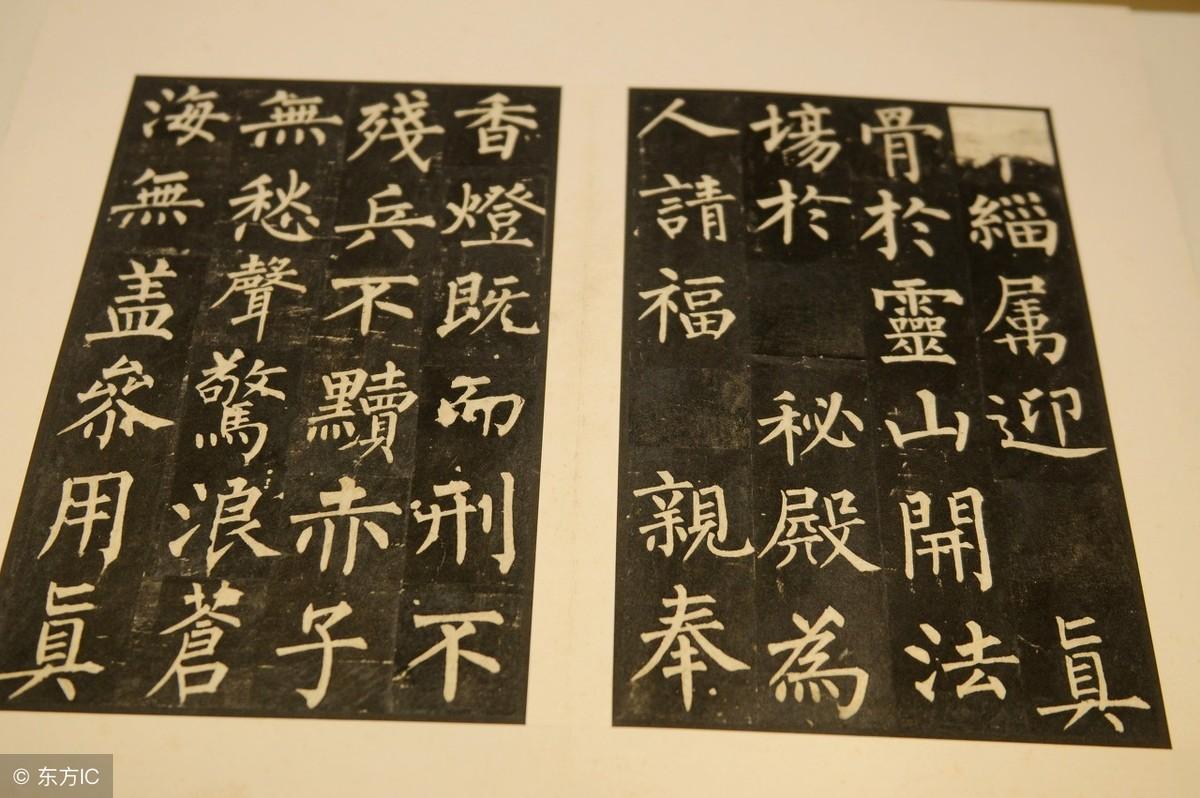 緇属迎 真
骨於靈山開法
場於 秘殿為
人請福 親奉
香燈既而刑不
殘兵不黷赤子
無愁聲驚浪蒼
海無盖叅用真
© 东方IC